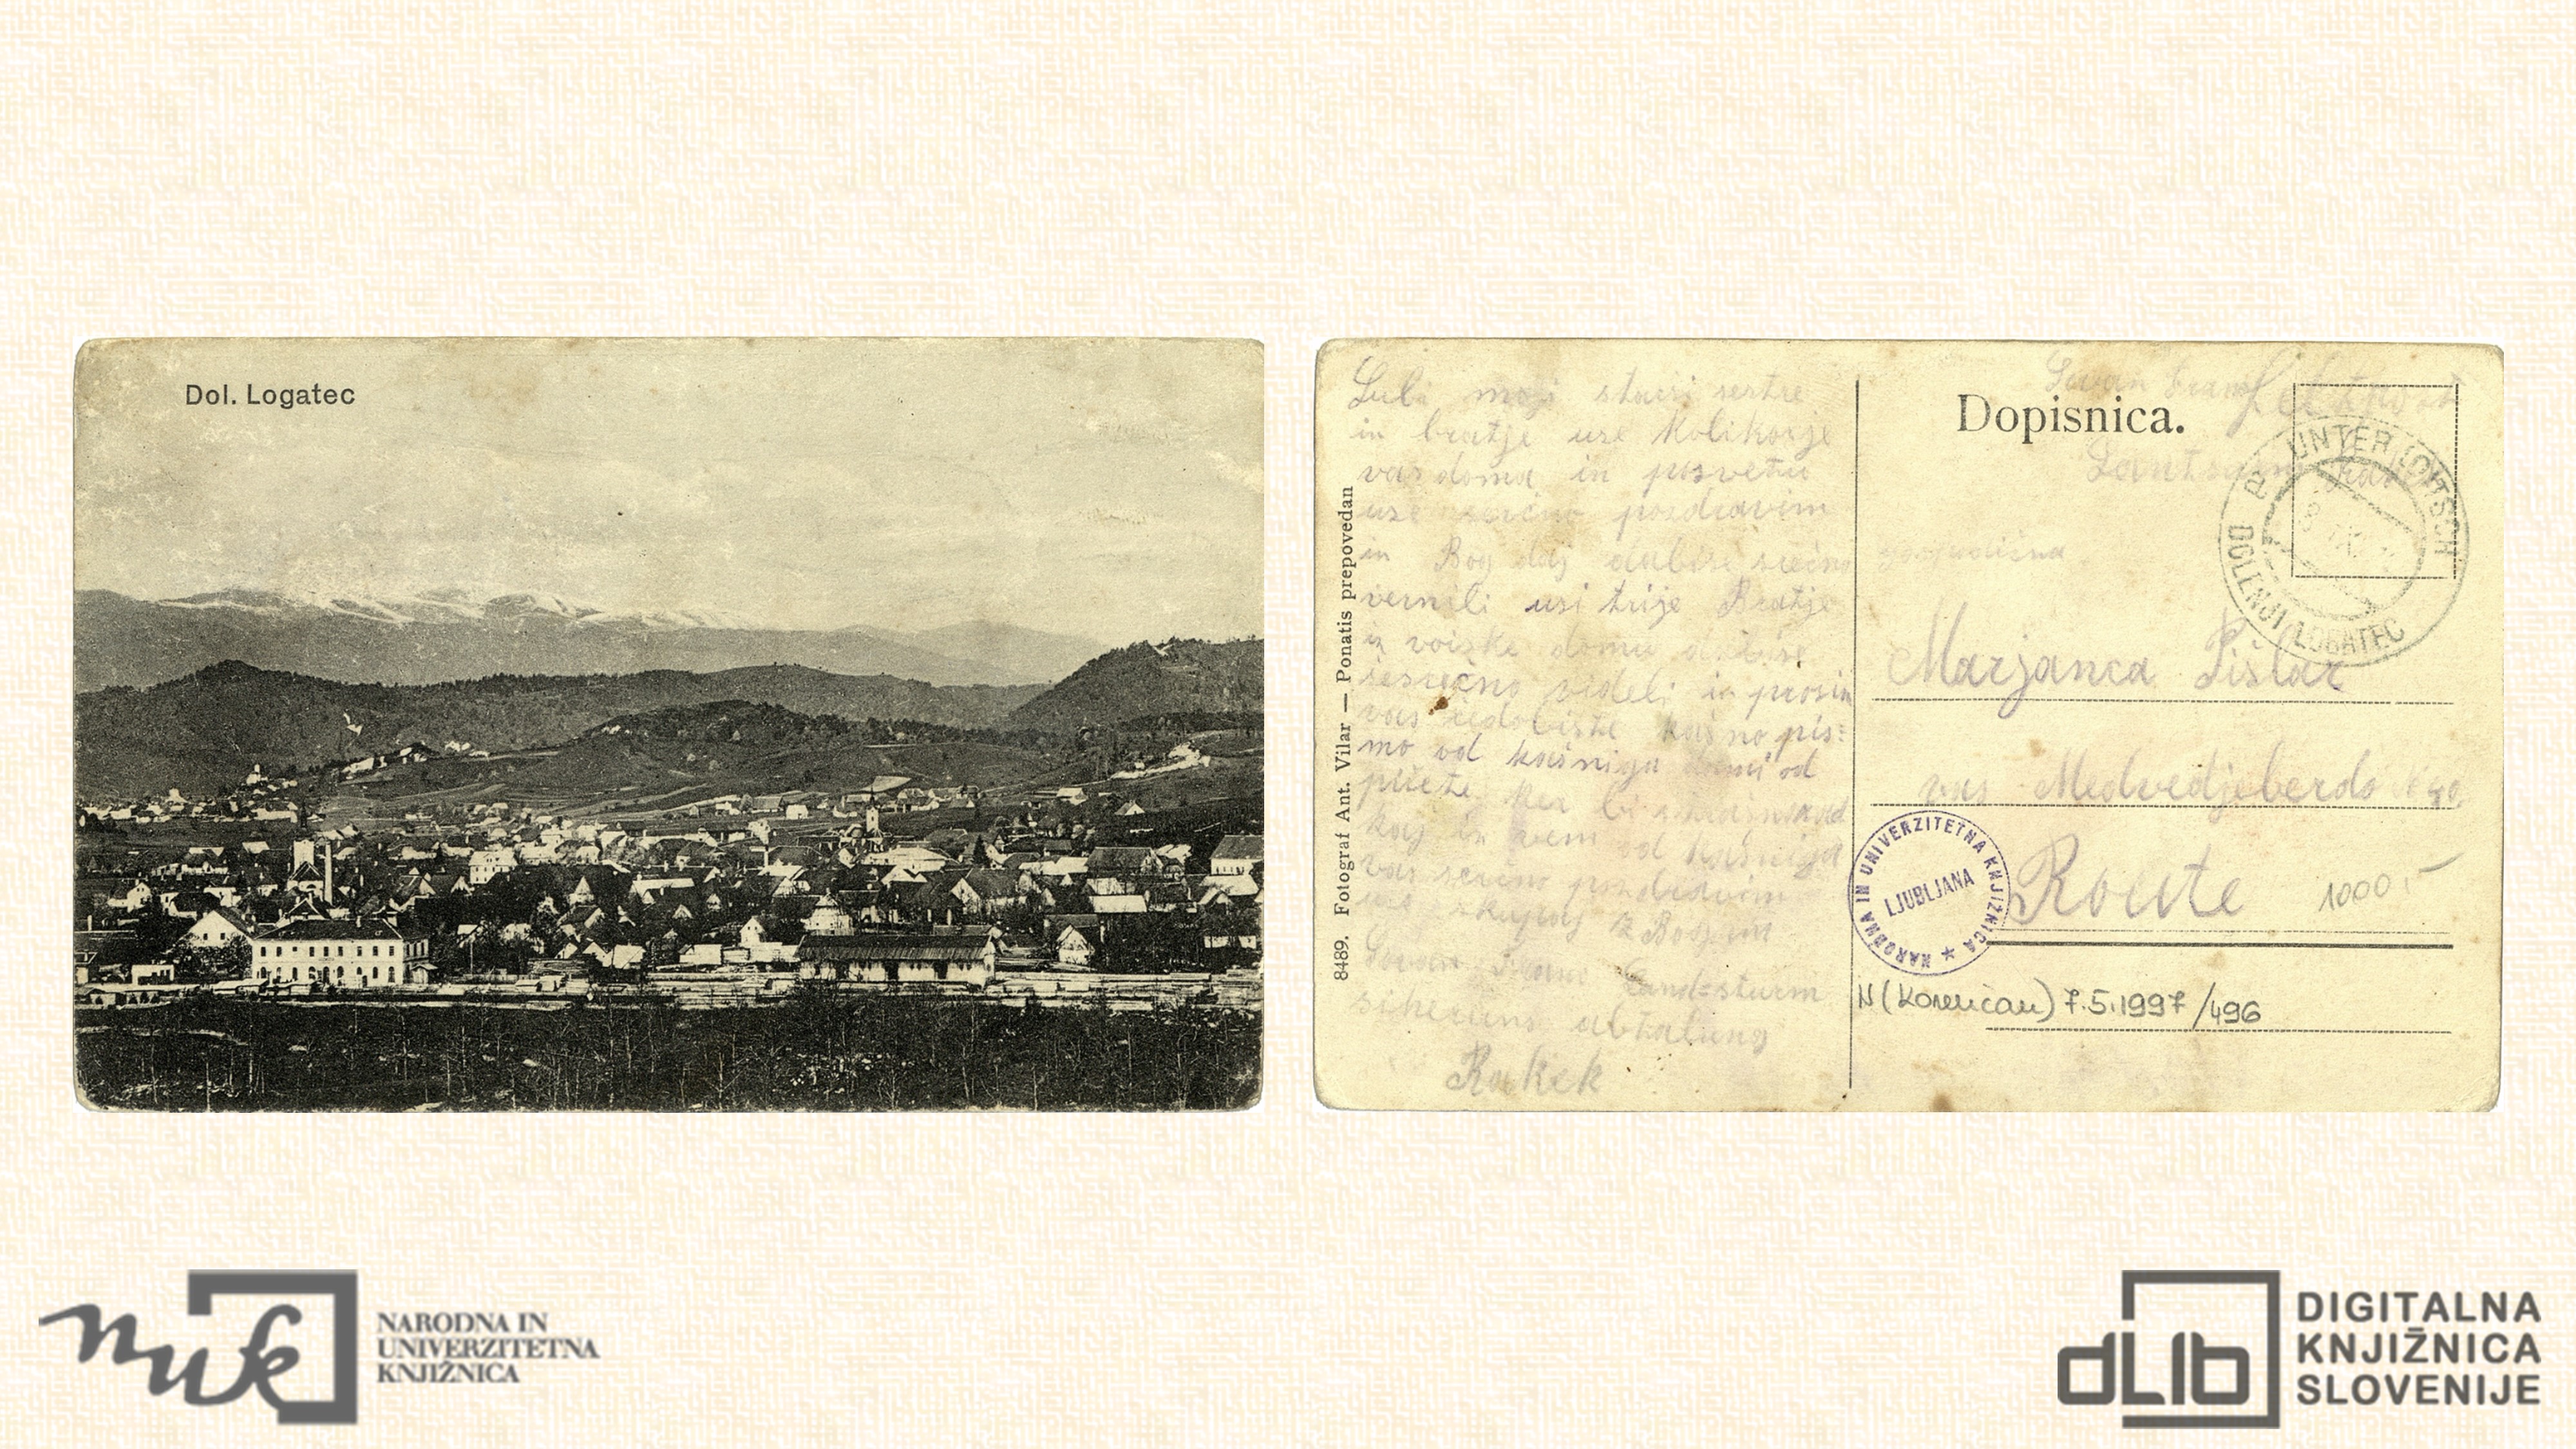 Dol. Logatec
8489. Fotograf Ant. Vilar — Ponatis prepovedan
Lubi moji starsi sestre
in bratje use kolikor je
vas doma in po svetu
use serčno pozdravim
in Bog daj dabi se srečno
vernili usi trije Bratje
iz voiske domu dabi se
srečno videli in prosim
vas
kašno pis:
mo od kašniga
od
pišete ker bi
rad
kaj iz vem od kašniga
vas serčno pozdravim
use skupaj z Bogom
Landsturm
abtalung
Rakek
Dopisnica.
UNTER LOITSCH
DOLENJI LOGATEC
gospodična
Marjanca Pišlar
vas Medvedjeberdo
Route
1000.-
NARODNA IN UNIVERZITETNA KNJIŽNICA ★
LJUBLJANA
N (Korenčan) 7.5.1997/496
nuk
NARODNA IN
UNIVERZITETNA
KNJIŽNICA
dLib
DIGITALNA
KNJIŽNICA
SLOVENIJE